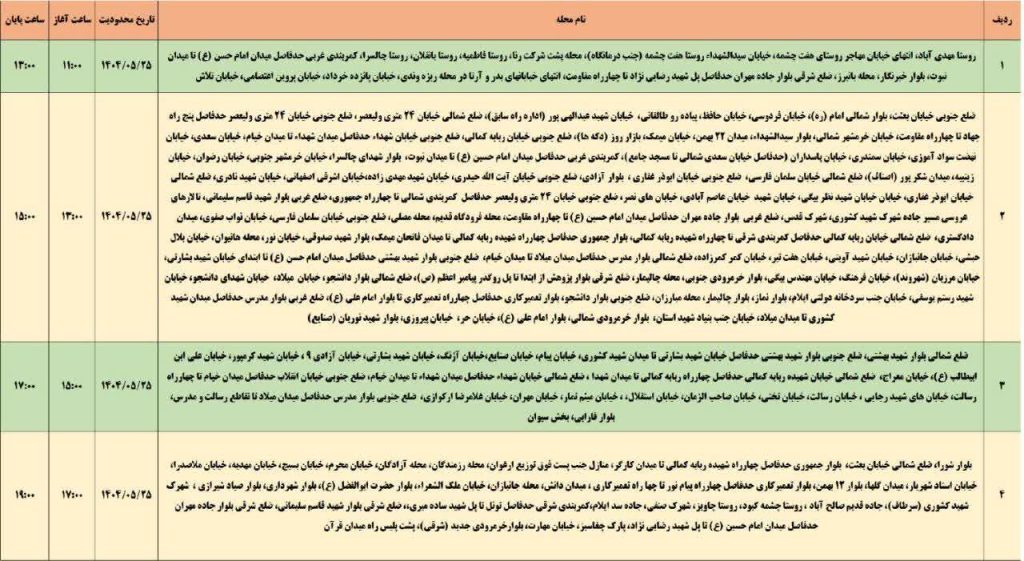 ردیف نام محله تاریخ محدودیت ساعت آغاز ساعت پایان
۱ ۱۴۰۴/۰۵/۲۵ ۱۱:۰۰ ۱۳:۰۰
روستا مهدی آباد، انتهای خیابان مهاجر روستای هفت چشمه، خیابان سیدالشهداء روستا هفت چشمه (جنب درمانگاه)، محله پشت شرکت رنا، روستا فاطمیه، روستا بانقلان، روستا چالسرا، کمربندی غربی حدفاصل میدان امام حسن (ع) تا میدان
نبوت، بلوار خبرنگار، محله بانبرز، ضلع شرقی بلوار جاده مهران حدفاصل پل شهید رضایی نژاد تا چهارراه مقاومت، انتهای خیابانهای بدر و آرتا در محله ریزه وندی، خیابان پانزده خرداد، خیابان پروین اعتصامی، خیابان تلاش
۲ ۱۴۰۴/۰۵/۲۵ ۱۳:۰۰ ۱۵:۰۰
ضلع جنوبی خیابان بعثت، بلوار شمالی امام (ره)، خیابان فردوسی، خیابان حافظ، پیاده رو طالقانی، خیابان شهید عبدالهی پور (اداره راه سابق)، ضلع شمالی خیابان ۲۴ متری ولیعصر، ضلع جنوبی خیابان ۲۴ متری ولیعصر حدفاصل پنج راه
جهاد تا چهارراه مقاومت، خیابان خرمشهر شمالی، بلوار سیدالشهداء، میدان ۲۲ بهمن، خیابان میمک، بازار روز (دکه ها)، ضلع جنوبی خیابان ربابه کمالی، ضلع جنوبی خیابان شهداء حدفاصل میدان شهداء تا میدان خیام، خیابان سعدی، خیابان
نهضت سواد آموزی، خیابان سمندری، خیابان پاسداران (حدفاصل خیابان سعدی شمالی تا مسجد جامع)، کمربندی غربی حدفاصل میدان امام حسین (ع) تا میدان نبوت، بلوار شهدای چالسرا، خیابان خرمشهر جنوبی، خیابان رضوان، خیابان
زینبیه، میدان شکر پور (اصناف)، ضلع شمالی خیابان سلمان فارسی، ضلع جنوبی خیابان ابوذر غفاری ، بلوار آزادی، ضلع جنوبی خیابان آیت الله حیدری، خیابان شهید مهدی زاده،خیابان اشرفی اصفهانی، خیابان شهید نادری، ضلع شمالی
خیابان ابوذر غفاری، خیابان شهید نظر بیگی، خیابان شهید خیابان عاصم آبادی، خیابان های نصر، ضلع جنوبی خیابان ۲۴ متری ولیعصر حدفاصل کمربندی شمالی تا چهارراه جمهوری، ضلع غربی بلوار شهید قاسم سلیمانی، تا لارهای
عروسی مسیر جاده شهرک شهید کشوری، شهرک قدس، ضلع غربی بلوار جاده مهران حدفاصل میدان امام حسین (ع) تا چهارراه مقاومت، محله فرودگاه قدیم، محله مصلی، ضلع جنوبی خیابان سلمان فارسی، خیابان نواب صفوی، میدان
دادگستری، ضلع شمالی خیابان ربابه کمالی حدفاصل کمربندی شرقی تا چهارراه شهیده ربابه کمالی، بلوار جمهوری حدفاصل چهارراه شهیده ربابه کمالی تا میدان فاتحان میمک، بلوار شهید صدوقی، خیابان نور، محله هانیوان، خیابان بلال
حبشی، خیابان جانبازان، خیابان شهید آوینی، خیابان هفت تیر، خیابان کمر کمرزاده، ضلع شمالی بلوار مدرس حدفاصل میدان میلاد تا میدان خیام، ضلع جنوبی بلوار شهید بهشتی حدفاصل میدان امام حسن (ع) تا ابتدای خیابان شهید بشارتی،
خیابان مرزبان (شهروند)، خیابان فرهنگ، خیابان مهندس بیگی، بلوار خرمرودی جنوبی، محله چالیمار، ضلع شرقی بلوار پژوهش از ابتدا تا پل روگذر پیامبر اعظم (ص)، ضلع شمالی بلوار دانشجو، خیابان میلاد، خیابان شهدای دانشجو، خیابان
شهید رستم یوسفی، خیابان جنب سردخانه دولتی ایلام، بلوار نماز، بلوار چالیمار، محله مبارزان، ضلع جنوبی بلوار دانشجو، بلوار تعمیرکاری حدفاصل چهارراه تعمیرکاری تا بلوار امام علی (ع)، ضلع غربی بلوار مدرس حدفاصل میدان شهید
کشوری تا میدان میلاد، خیابان جنب بنیاد شهید استان، بلوار خرمرودی شمالی، بلوار امام علی (ع)، خیابان حر، خیابان پیروزی، بلوار شهید نوریان (صنایع)
۳ ۱۴۰۴/۰۵/۲۵ ۱۵:۰۰ ۱۷:۰۰
ضلع شمالی بلوار شهید بهشتی، ضلع جنوبی بلوار شهید بهشتی حدفاصل خیابان شهید بشارتی تا میدان شهید کشوری، خیابان پیام، خیابان صنایع،خیابان آژنگ، خیابان شهید بشارتی، خیابان آزادی ۹ ، خیابان شهید کرمپور، خیابان علی ابن
ابیطالب (ع)، خیابان معراج، ضلع شمالی خیابان شهیده ربابه کمالی حدفاصل چهارراه ربابه کمالی تا میدان شهدا ، ضلع شمالی خیابان شهداء حدفاصل میدان شهداء تا میدان خیام، ضلع جنوبی خیابان انقلاب حدفاصل میدان خیام تا چهارراه
رسالت، خیابان های شهید رجایی ، خیابان رسالت، خیابان تختی، خیابان صاحب الزمان، خیابان استقلال، ، خیابان میثم تمار، خیابان مهران، خیابان غلامرضا ارکوازی، ضلع جنوبی بلوار مدرس حدفاصل میدان میلاد تا تقاطع رسالت و مدرس،
بلوار فارابی، بخش سیوان
۴ ۱۴۰۴/۰۵/۲۵ ۱۷:۰۰ ۱۹:۰۰
بلوار شورا، ضلع شمالی خیابان بعثت، بلوار جمهوری حدفاصل چهارراه شهیده ربابه کمالی تا میدان کارگر، منازل جنب پست فوق توزیع ارغوان، محله رزمندگان، محله آزادگان، خیابان محرم، خیابان بسیج، خیابان مهدیه، خیابان ملاصدرا،
خیابان استاد شهریار، میدان گلها، بلوار ۱۲ بهمن، بلوار تعمیرکاری حدفاصل چهارراه پیام نور تا چها راه تعمیرکاری ، میدان دانش، محله جانبازان، خیابان ملک الشعراء، بلوار حضرت ابوالفضل (ع)، بلوار شهرداری، بلوار صیاد شیرازی ، شهرک
شهید کشوری (سرطاف)، جاده قدیم صالح آباد ، روستا چشمه کبود، روستا چاویز، شهرک صنفی، جاده سد ایلام،کمربندی شرقی حدفاصل تونل تا پل شهید ساده میری،، ضلع شرقی بلوار شهید قاسم سلیمانی، ضلع شرقی بلوار جاده مهران
حدفاصل میدان امام حسین (ع) تا پل شهید رضایی نژاد، پارک چغاسبز، خیابان مهارت، بلوارخرمرودی جدید (شرقی)، پشت پلیس راه میدان قرآن